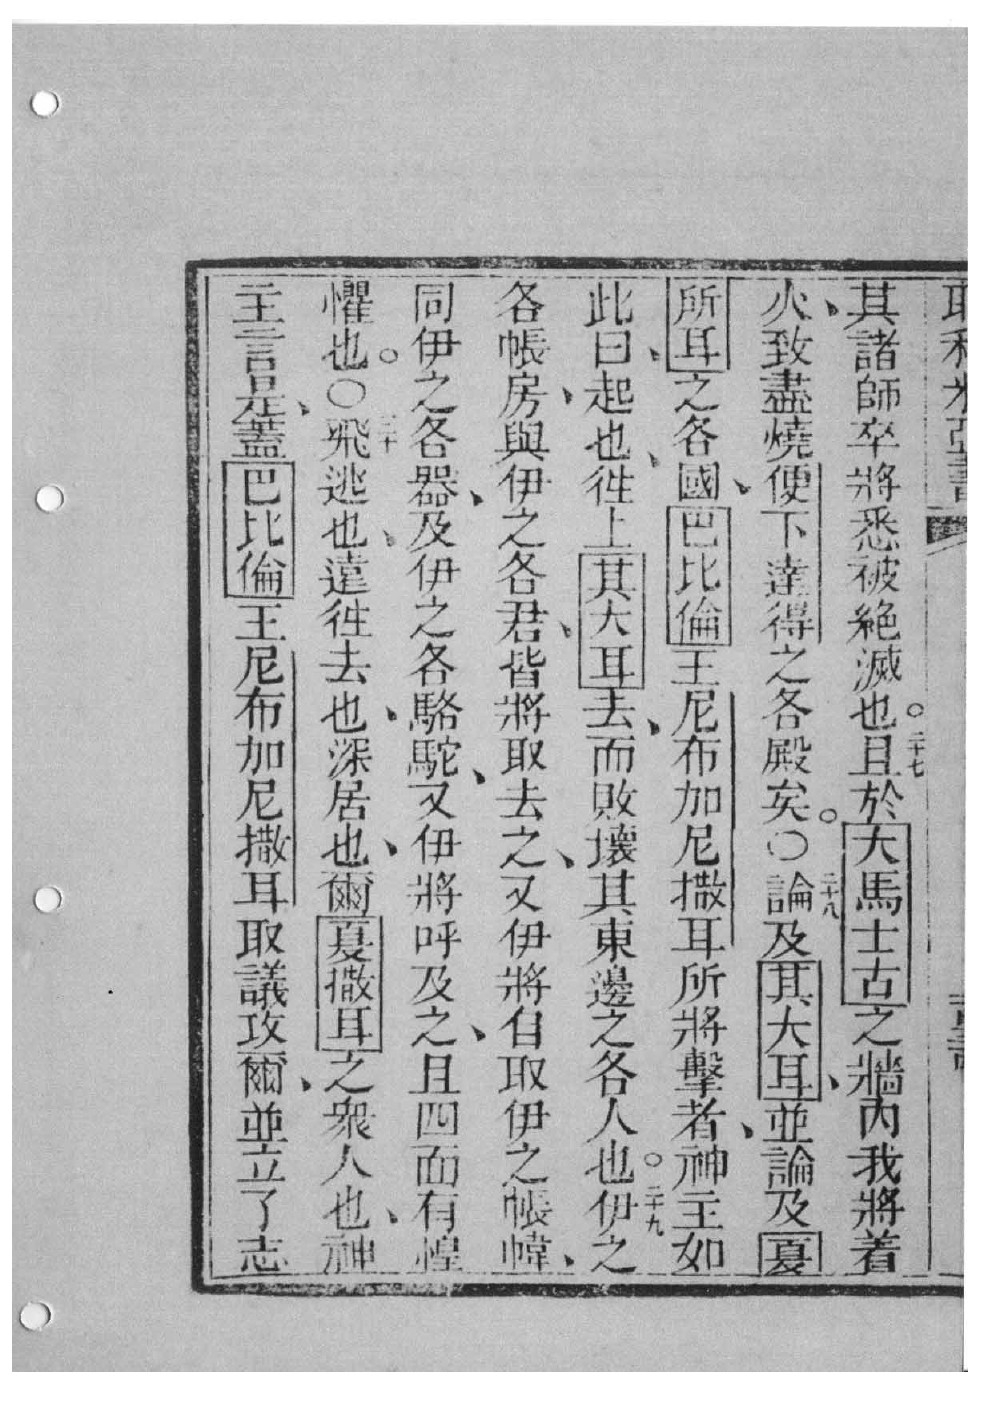 耶利米亞書
其諸師卒將悉被絕滅也。二十七且於大馬士古之墻內我將着
火、致盡燒便下達得之各殿矣。○二十八論及其大耳、並論及夏
所耳之各國、巴比倫王尼布加尼撒耳所將擊者、神主如
此曰、起也、徃上其大耳去、而敗壞其東邊之各人也。二十九伊之
各帳房、與伊之各君、皆將取去之、又伊將自取伊之帳幃、
同伊之各器、及伊之各駱駝、又伊將呼及之、且四面有惶
懼也。○三十飛逃也、遠徃去也、深居也、爾夏撒耳之衆人也、神
主言是、蓋巴比倫王尼布加尼撒耳取議攻爾、並立了志